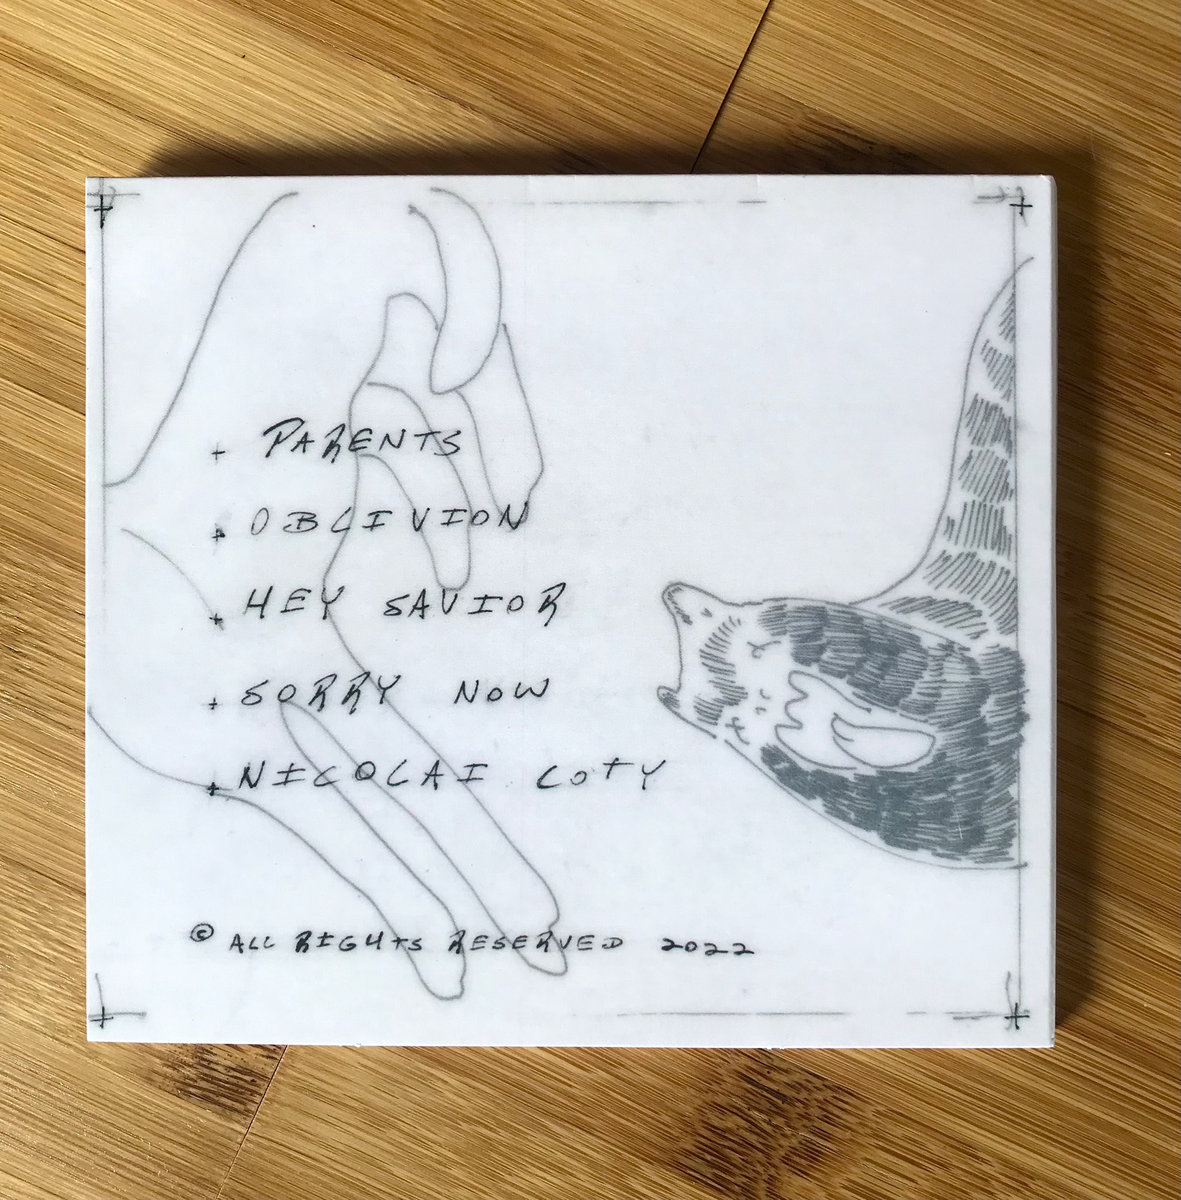 + PARENTS
+ OBLIVION
+ HEY SAVIOR
+ SORRY NOW
+ NICOLAI COTY
© ALL RIGHTS RESERVED 2022